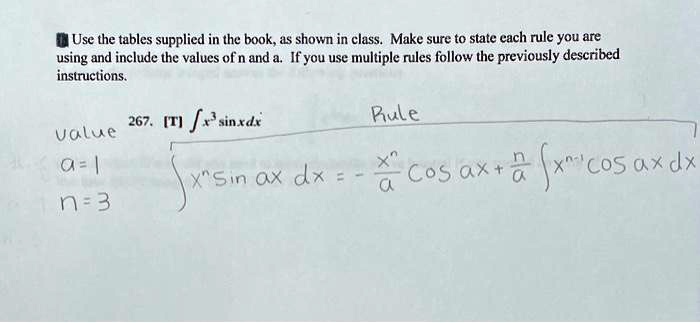 Use the tables supplied in the book, as shown in class. Make sure to state each rule you are
using and include the values of n and a. If you use multiple rules follow the previously described
instructions.
267. [T] ∫x³ sin x dx
Rule
value
a = 1
n = 3
∫ xⁿ sin ax dx = - xⁿ/a cos ax + n/a ∫ xⁿ⁻¹ cos ax dx